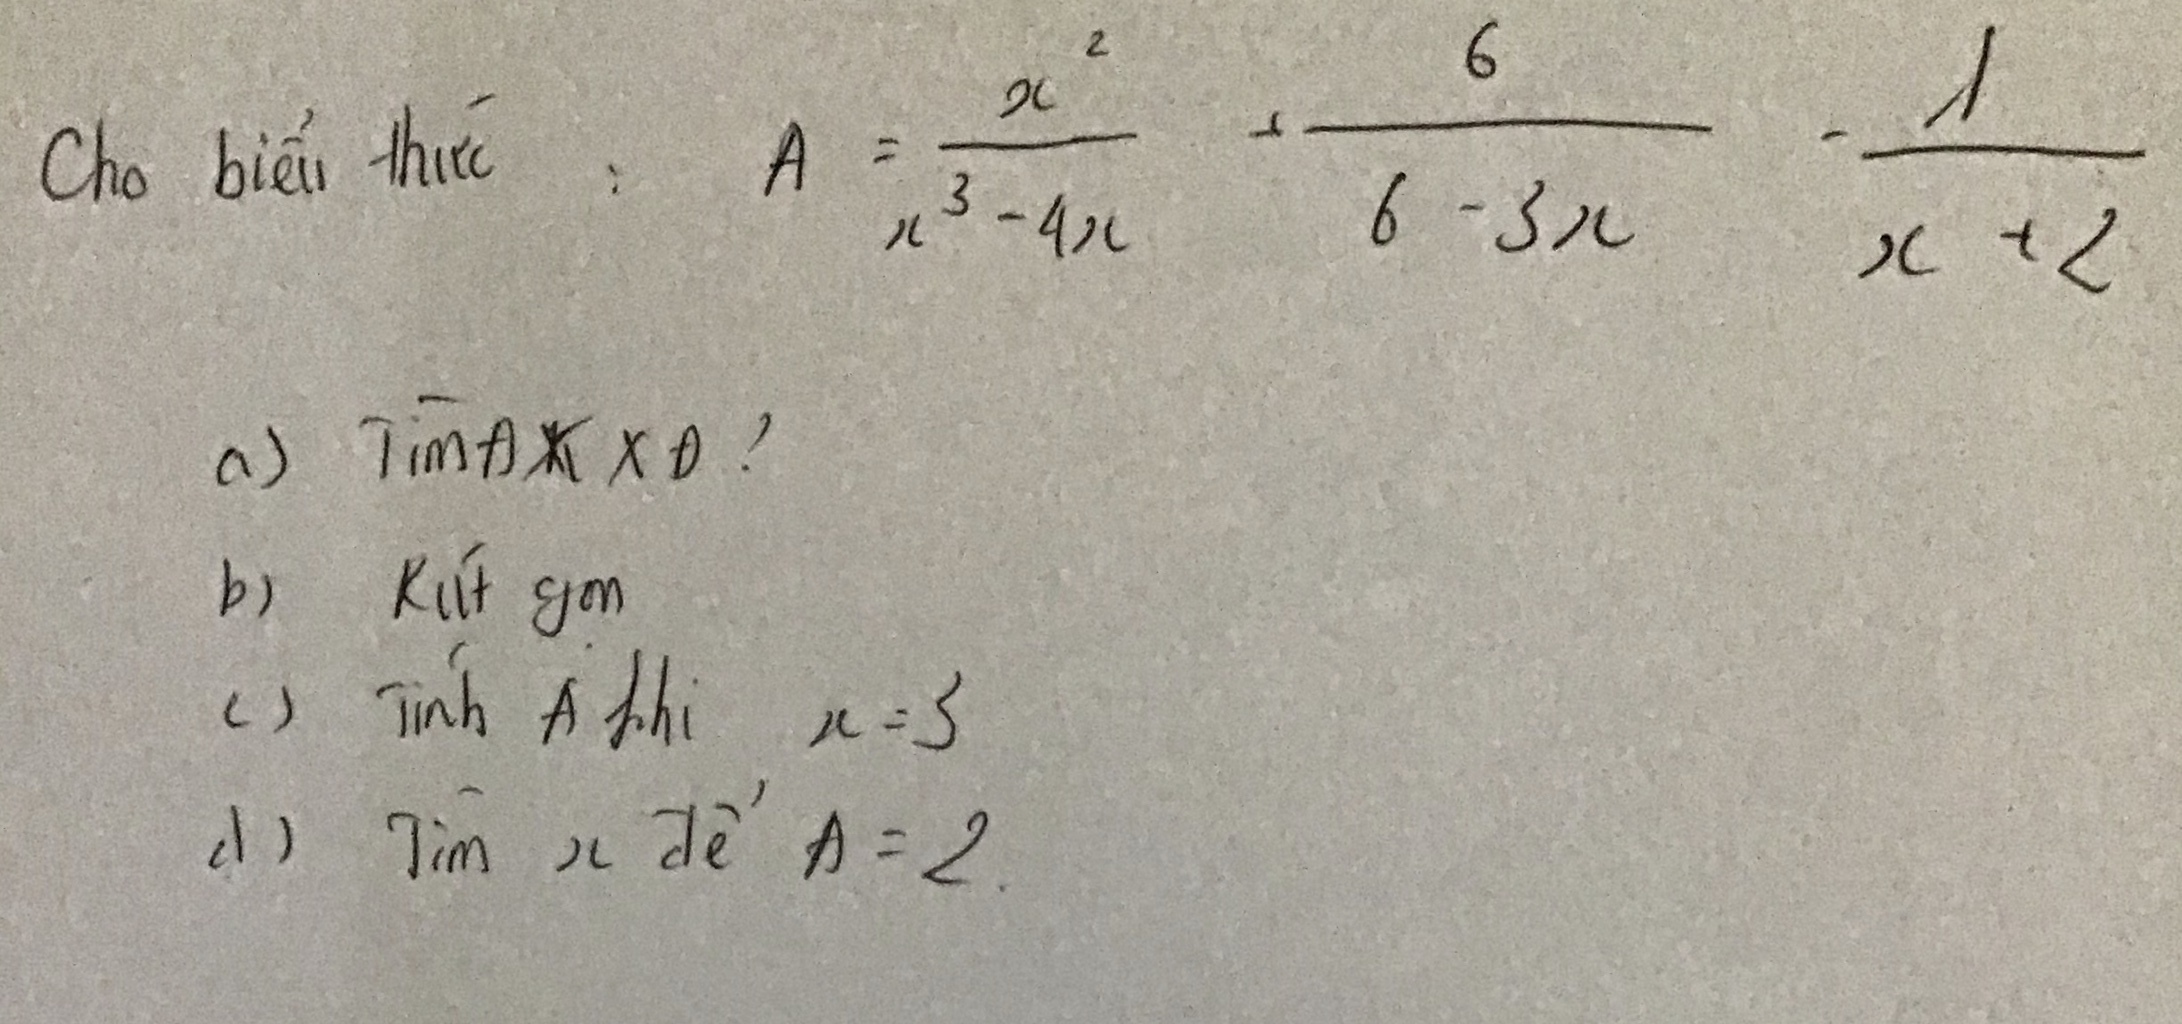 Cho biểu thức : A = x²/(x³ - 4x) + 6/(6 - 3x) - 1/(x + 2)
a) Tìm ĐKXĐ?
b) Rút gọn
c) Tính A khi x = 3
d) Tìm x để A = 2.